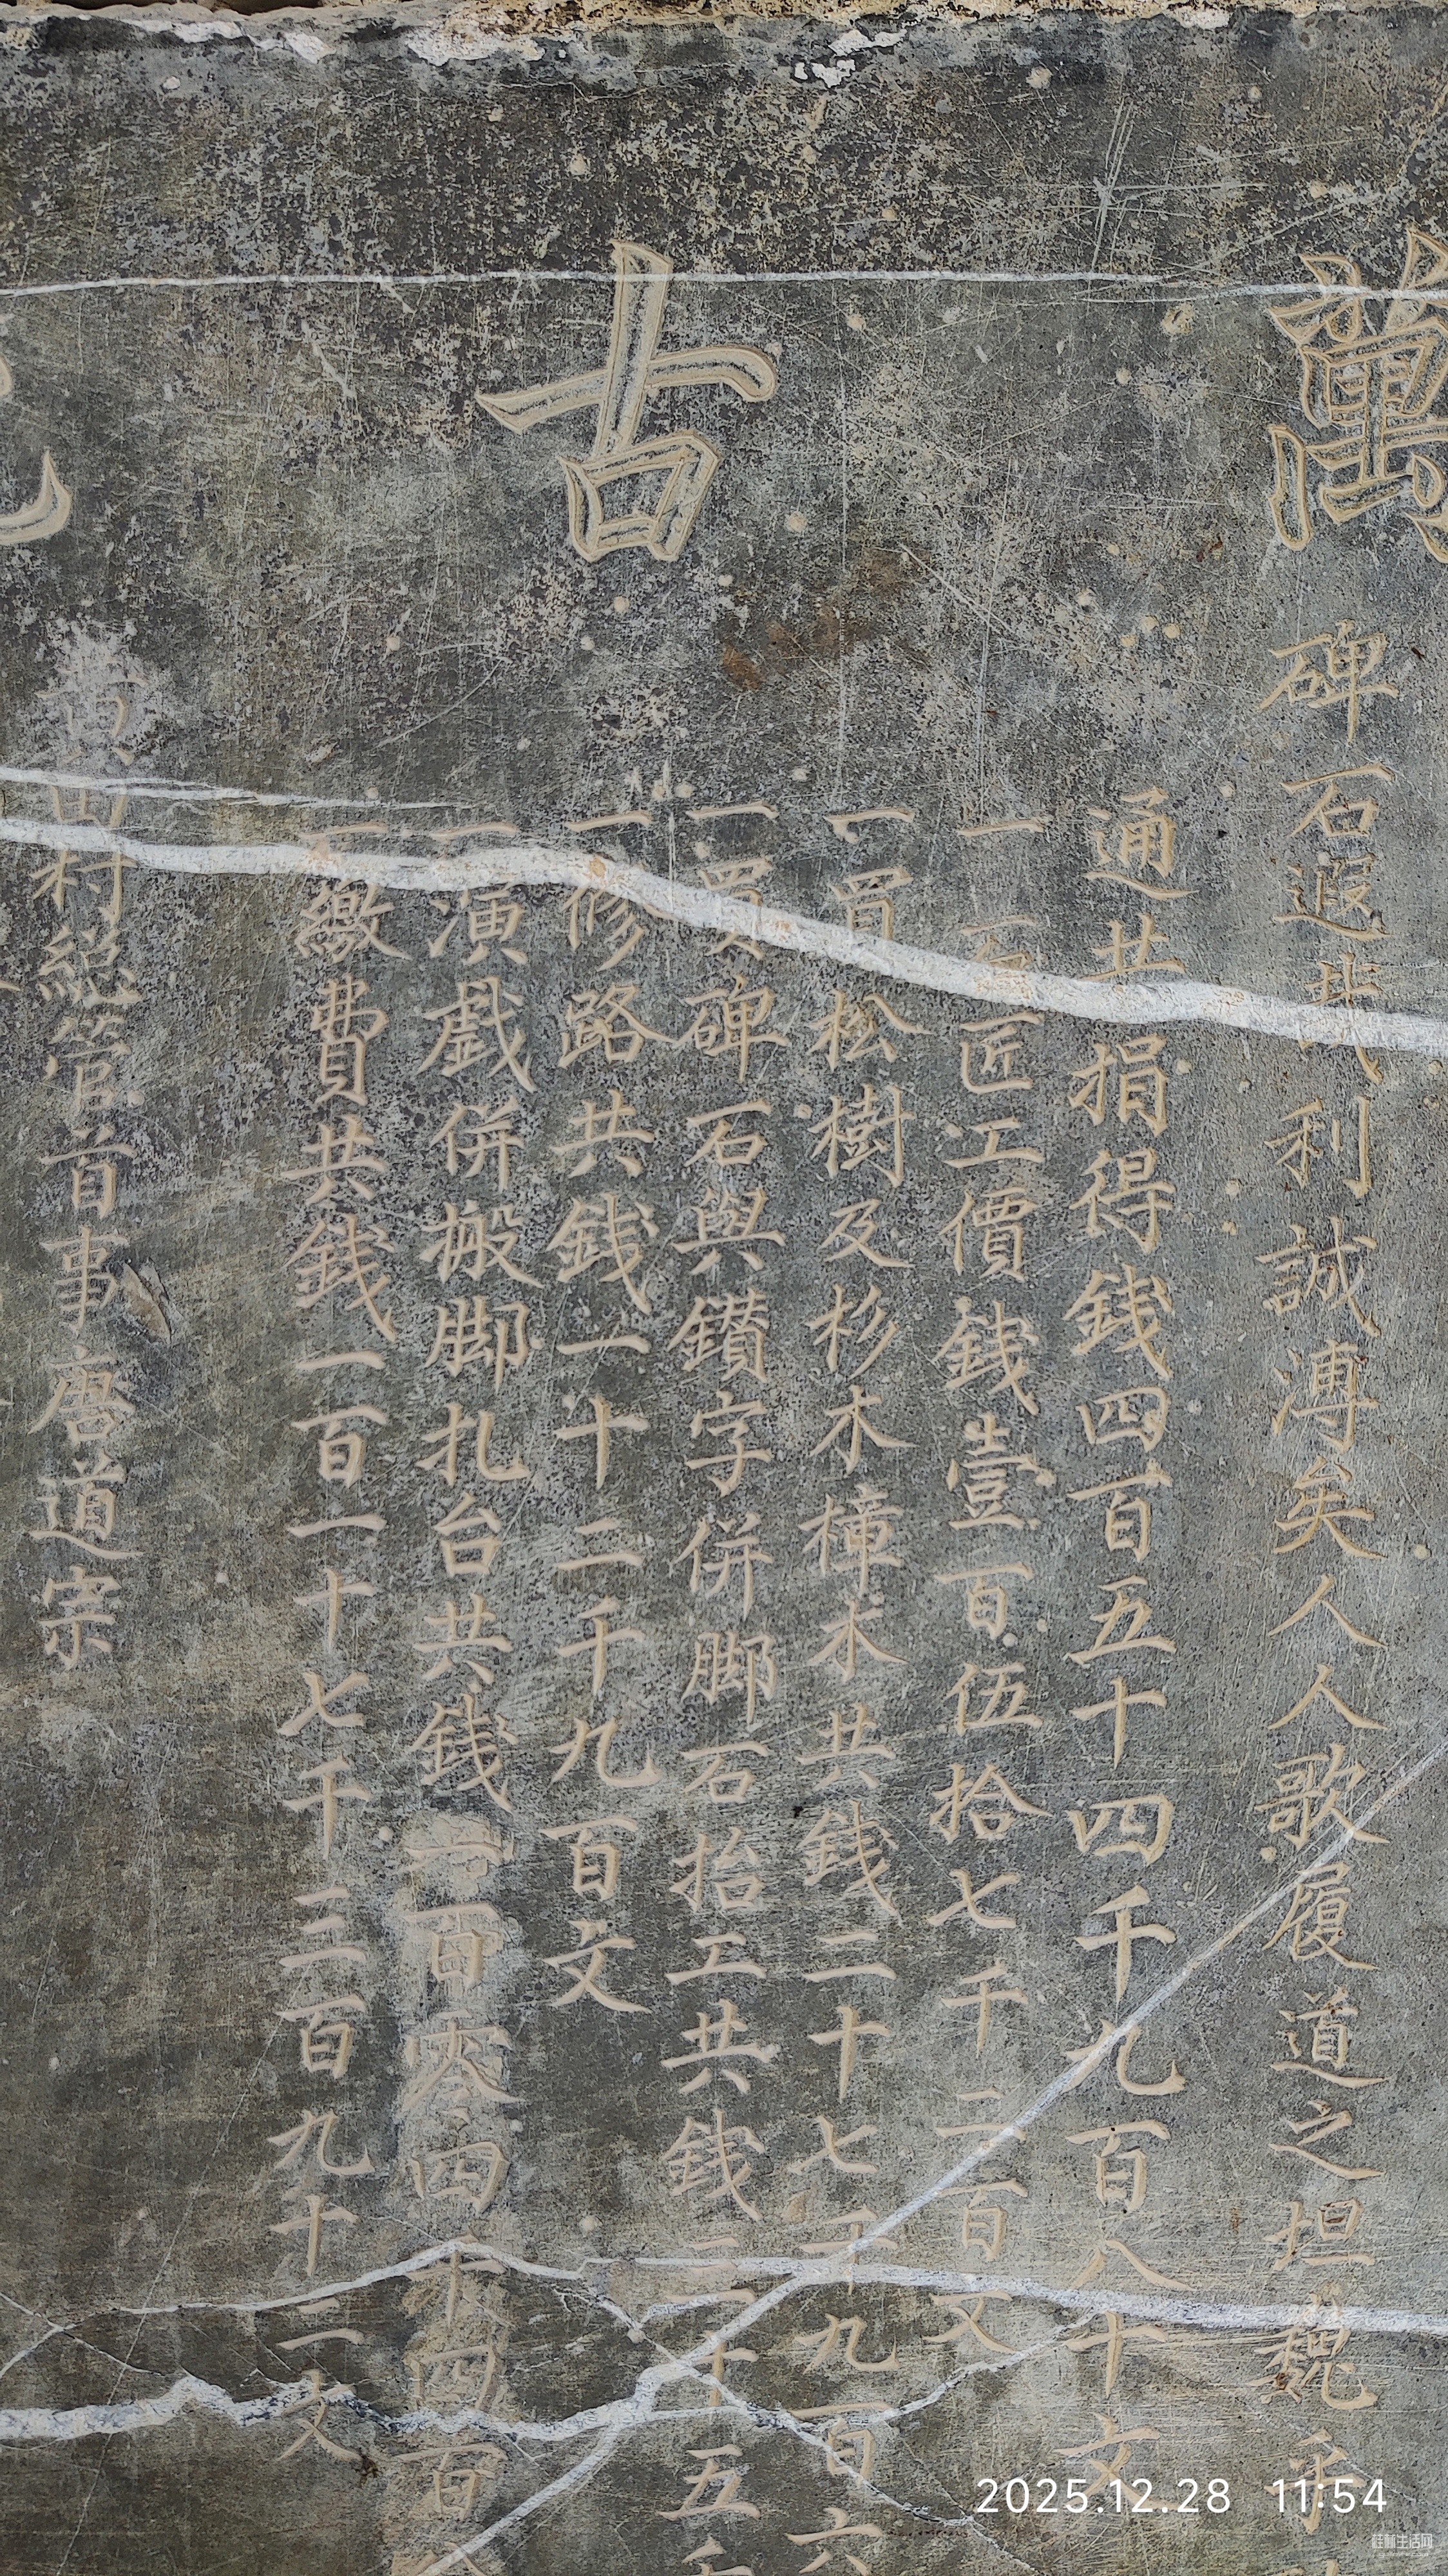 萬古
碑石遐攸利誠溥矣人人歌履道之坦巍乎
通共捐得錢四百五十四千九百八十文
一石匠工價錢壹百伍拾七千二百文
一買松樹及杉木樟木共錢二十七千九百六
一買碑石與鑽字併脚石抬工共錢三十五
一修路共錢一十二千九百文
一演戲併搬脚扎台共錢一百零四千四百
一繳費共錢一百一十七千三百九十二文
黃田村總管首事唐道宗
2025.12.28 11:54
桂林生活网